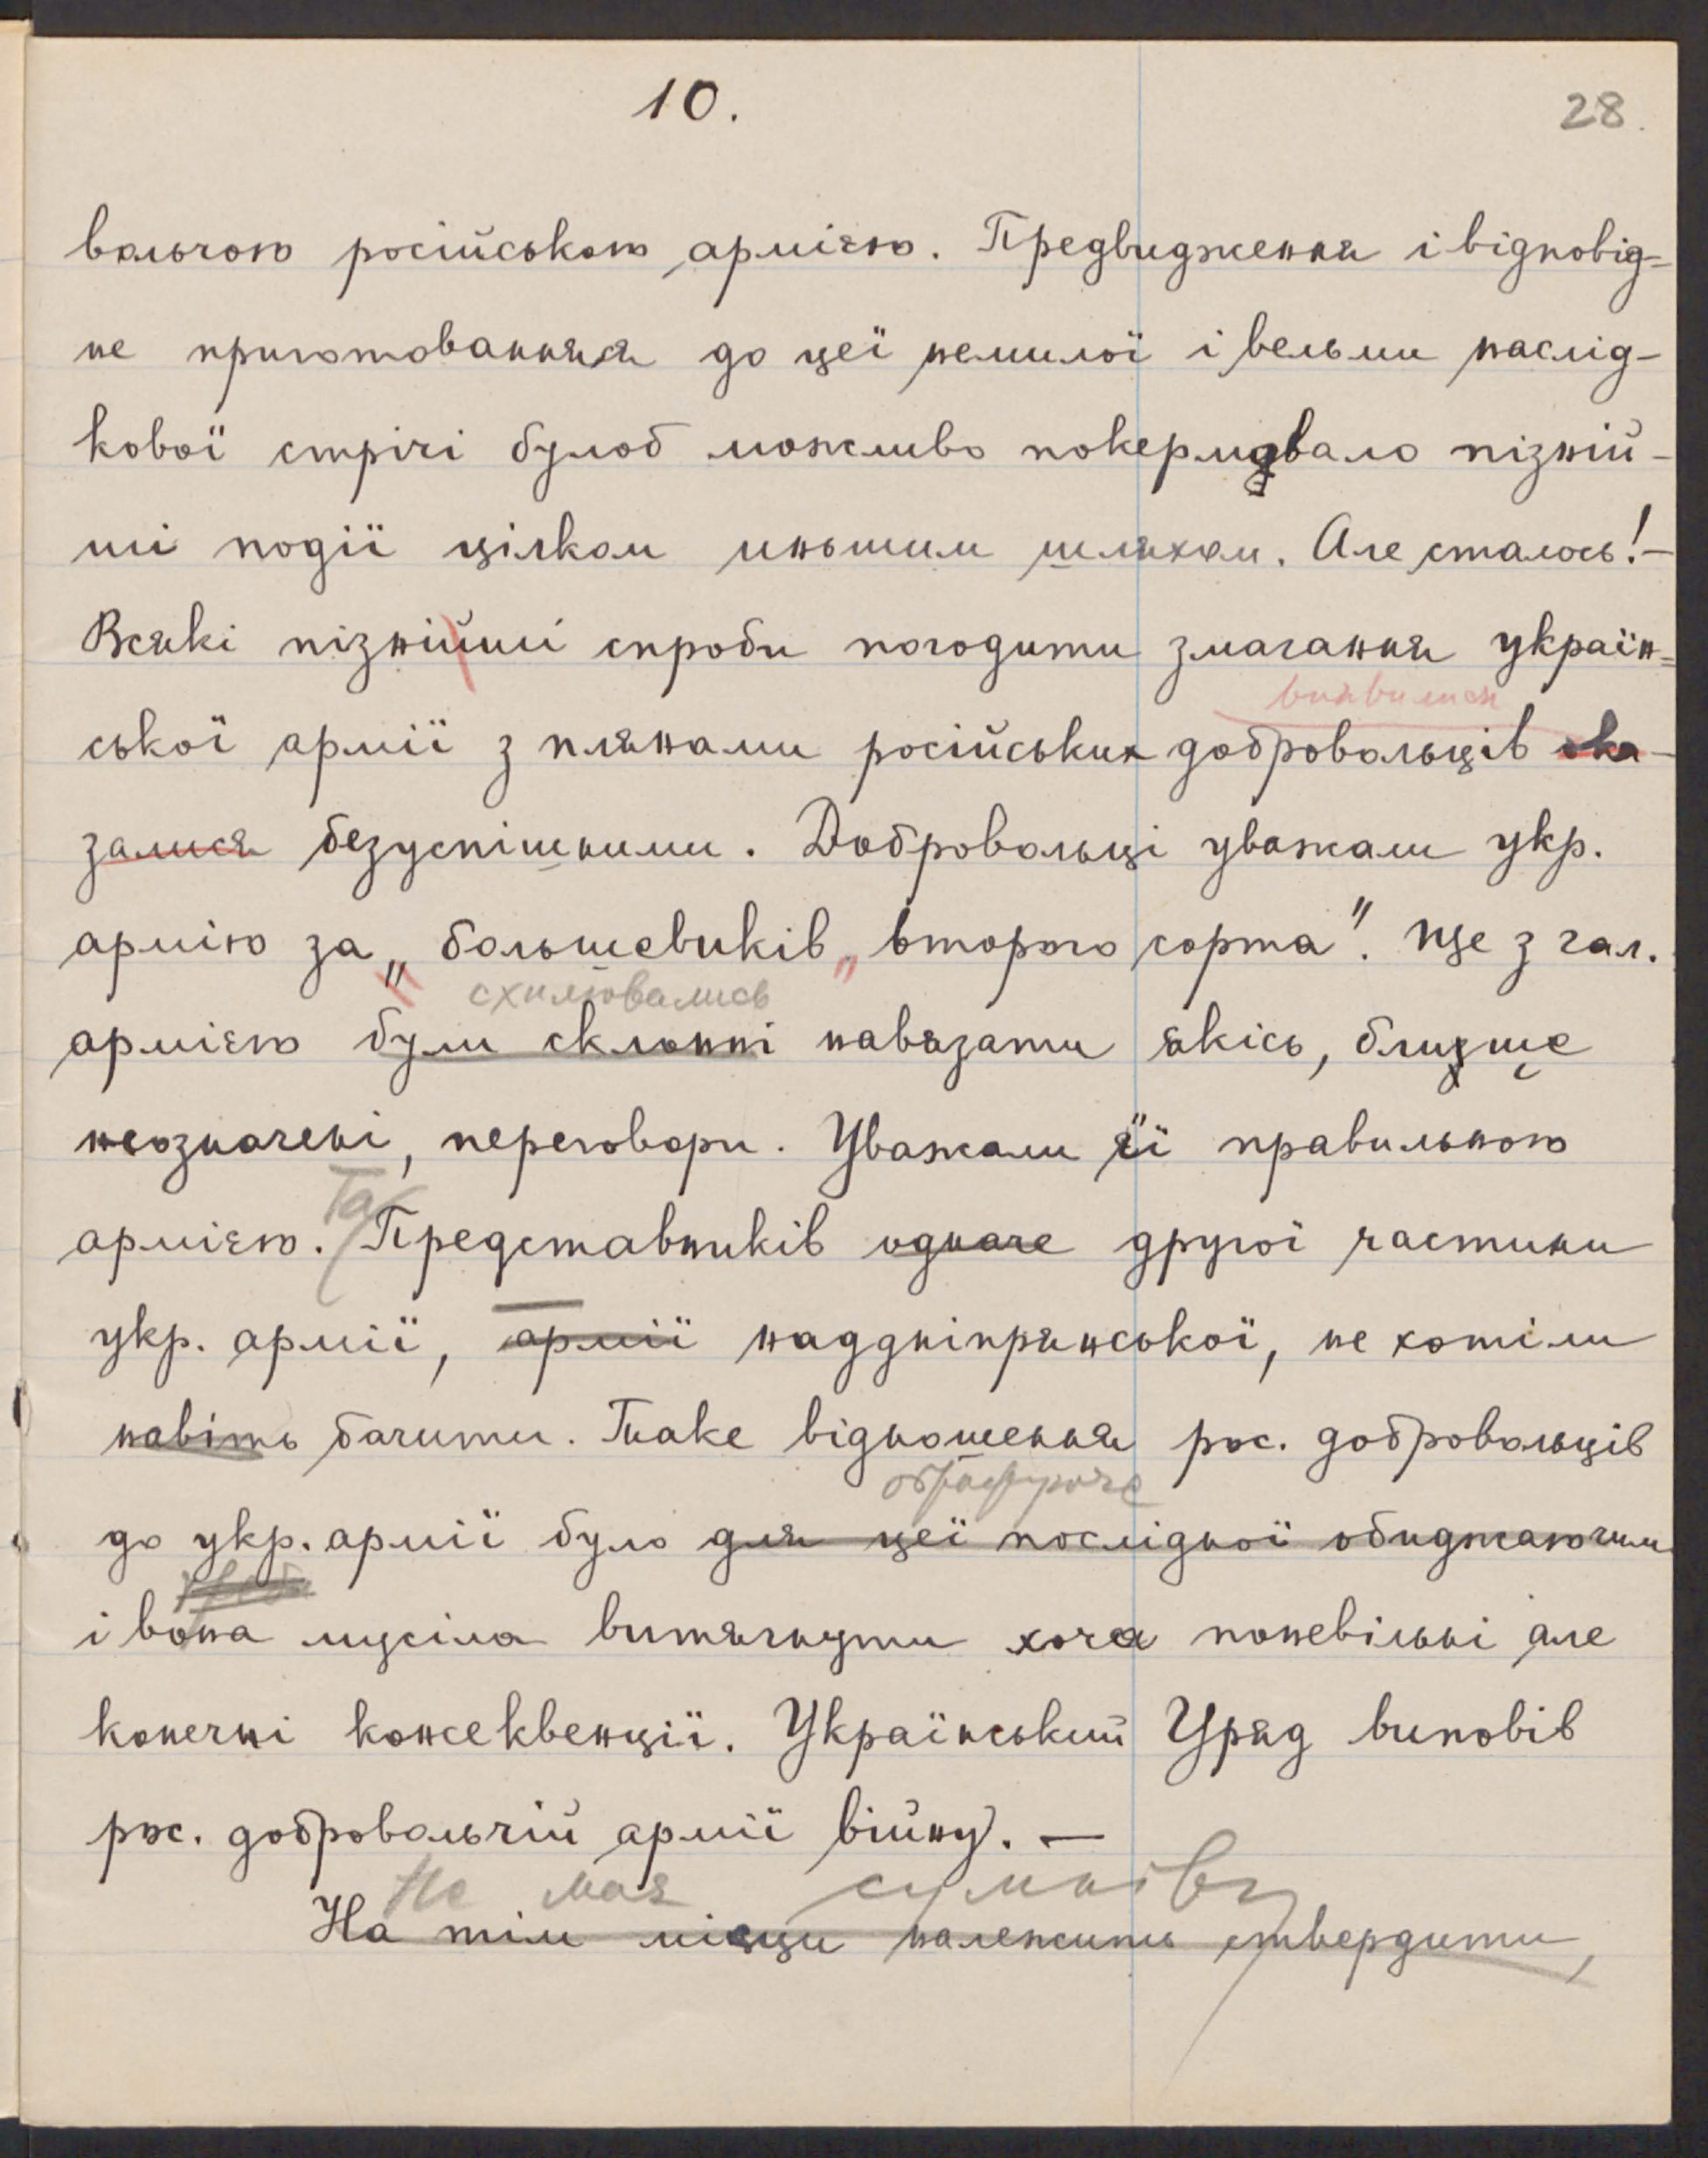 10.
28.
вольчою російською армією. Предвидження і відповід-
не приготованняя до цеї немилої і вельми наслід-
кової стрічі булоб можливо покермувало пізній-
ші події цілком иньшим шляхом. Але сталось! —
Всякі пізнійші спроби погодити змагання україн-
виявилися
ської армії з плянами російських добровольців ока-
залися безуспішними. Добровольці уважали укр.
армію за „большевиків „второго сорта". Ще з гал.
схилювались
армією були склонні навязати якісь, близше
неозначені, переговори. Уважали її правильною
Та
армією. Представників одначе другої частини
укр. армії, армії наддніпрянської, не хотіли
навіть бачити. Таке відношення рос. добровольців
до укр. армії було для цеї послідної обиджаючим
і вона мусіла витягнути хоча поневільні але
конечні консеквенції. Український Уряд виповів
рос. добровольчій армії війну. —
Не мая сумніву
На тім місци належить ствердити,